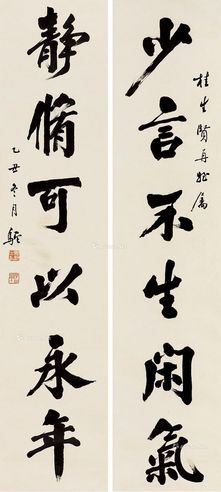 桂生賢再姪屬
少言不生閑氣
靜脩可以永年
乙丑冬月